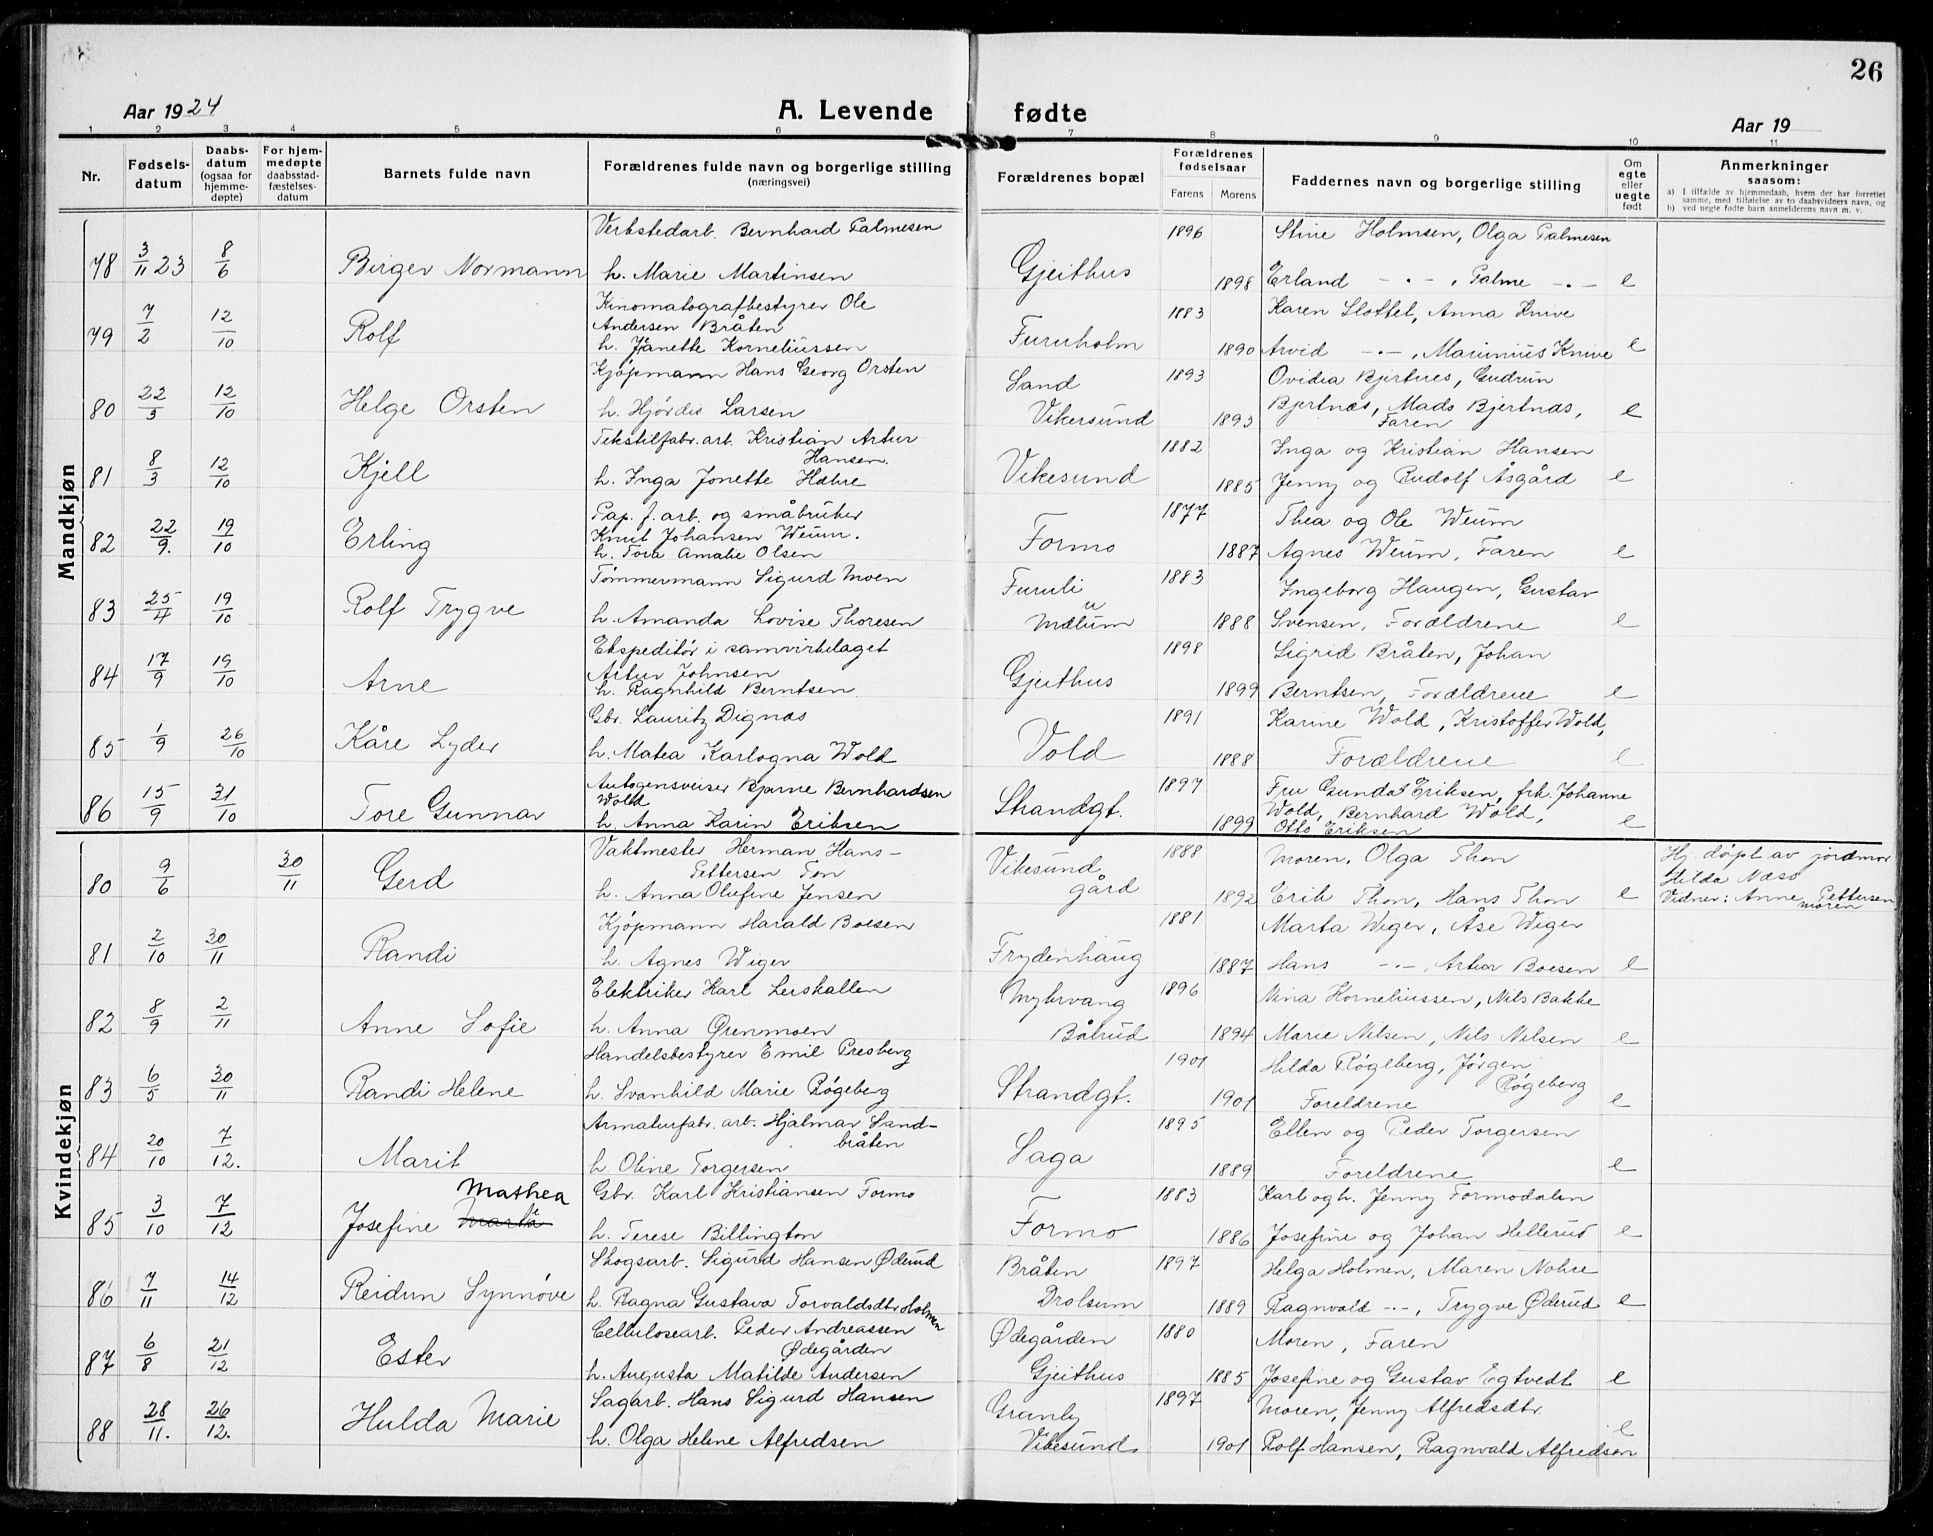 26
Aar 1924
A. Levende fødte
Aar 19
1 2 3 4 5 6 7 8 9 10 11
Nr.
Fødsels-
datum
Daabs-
datum
(ogsaa for
hjemme-
døpte)
For hjem-
medøpte
daabsstad-
fæstelses-
datum
Barnets fulde navn
Forældrenes fulde navn og borgerlige stilling
(næringsvei)
Forældrenes bopæl
Forældrenes
fødselsaar
Farens Morens
Faddernes navn og borgerlige stilling
Om
egte
eller
uegte
født
Anmerkninger
saasom:
a) I tilfælde av hjemmedaab, hvem der har forrettet
samme, med tilføielse av to daabsvidners navn, og
b) ved uegte fødte barn anmelderens navn m. v.
Mandkjøn
Verkstedarb. Bernhard Palmesen 1896 Stine Holmsen, Olga Palmesen
78 3/11 23 8/6 Birger Normann h. Marie Martinsen Gjeithus 1898 Erland -"-, Palme -"- e
Kinomatografbestyrer Ole 1883 Karen Slottel, Anna Knive
79 7/2 12/10 Rolf Andersen Bråten Furuholm
h. Jånette Korneliussen 1890 Arvid -"-, Marinius Knive e
Kjøpmann Hans Georg Orsten Sand 1893 Ovidia Bjertnes, Gudrun
80 22/3 12/10 Helge Orsten h. Hjørdis Larsen Vikersund 1893 Bjertnæs, Mads Bjertnæs, e
Faren
Tekstilfabr. arb. Kristian Artur 1882 Inga og Kristian Hansen
Hansen.
81 8/3 12/10 Kjell h. Inga Jonette Hæhre Vikesund 1885 Jenny og Rudolf Åsgård e
Pap. f. arb. og småbruker 1877 Thea og Ole Weum
82 22/9. 19/10 Erling Knut Johansen Weum. Formo
h. Tora Amalie Olsen 1887 Agnes Weum, Faren e
Tømmermann Sigurd Moen Furuli 1883 Ingeborg Haugen, Gustav
u
83 25/4 19/10 Rolf Trygve h. Amanda Lovise Thoresen Mælum 1888 Svensen, Forældrene e
Ekspeditør i samvirkelaget 1898 Sigrid Bråten, Johan
84 17/9 19/10 Arne Artur Johnsen Gjeithus
h. Ragnhild Berntsen 1899 Berntsen, Forældrene e
Gbr. Lauritz Dignæs 1891 Karine Wold, Kristoffer Wold,
85 1/9 26/10 Kåre Lyder h. Matea Karlogna Wold Vold 1888 Forældrene e
Autogensveiser Bjarne Bernhardsen 1897 Fru Gunda Eriksen, frk. Johanne
86 15/9 31/10 Tore Gunnar Wold Strandgt. Wold, Bernhard Wold,
h. Anna Karin Eriksen 1899 Otto Eriksen e
Kvindekjøn
Vaktmester Herman Hans- Vikesund 1888 Moren, Olga Thon Hj. døpt av jordmor
80 9/6 30/11 Gerd Pettersen Ton gård Hilda Næss
h. Anna Olufine Jensen 1892 Erik Thon, Hans Thon e Vidner: Anne Pettersen
moren
Kjøpmann Harald Boesen 1881 Marta Wiger, Åse Wiger
81 2/10 30/11 Randi h. Agnes Wiger Frydenhaug 1887 Hans -"-, Artur Boesen e
Elektriker Karl Leiskallen Myhrvang 1896 Nina Korneliussen, Nils Bakke
82 8/9 2/11 Anne Sofie h. Anna Ørenmoen Bålrud 1894 Marie Nilsen, Nils Nilsen e
Handelsbestyrer Emil Presberg 1901 Hilda Røgeberg, Jørgen
Røgeberg
83 6/5 30/11 Randi Helene h. Svanhild Marie Røgeberg Strandgt. 1901 Foreldrene e
Armaturfabr. arb. Hjalmar Sand- 1895 Ellen og Peder Torgersen
bråten
84 20/10 7/12. Marit h. Oline Torgersen Saga 1889 Foreldrene e
Mathea Gbr. Karl Kristiansen Formo 1883 Karl og h. Jenny Formodalen
85 3/10 7/12 Josefine Marta h. Terese Billington Formo 1886 Josefine og Johan Hellerud e
Skogsarb. Sigurd Hansen Øderud Bråten 1897 Helga Holmen, Maren Nohre
86 7/11 14/12 Reidun Synnøve h. Ragna Gustava Torvaldsdtr Holmen Drolsum 1889 Ragnvald -"-, Trygve Øderud e
Cellulosearb. Peder Andreassen Ødegården 1880 Moren, Faren
Ødegården
87 6/8 21/12 Ester h. Augusta Matilde Andersen Gjeithus 1885 Josefine og Gustav Egtvedt e
Sagarb. Hans Sigurd Hansen Granly 1897 Moren, Jenny Alfredsdtr.
88 28/11. 26/12. Hulda Marie h. Olga Helene Alfredsen Vikesund 1901 Rolf Hansen, Ragnvald Alfredsen e